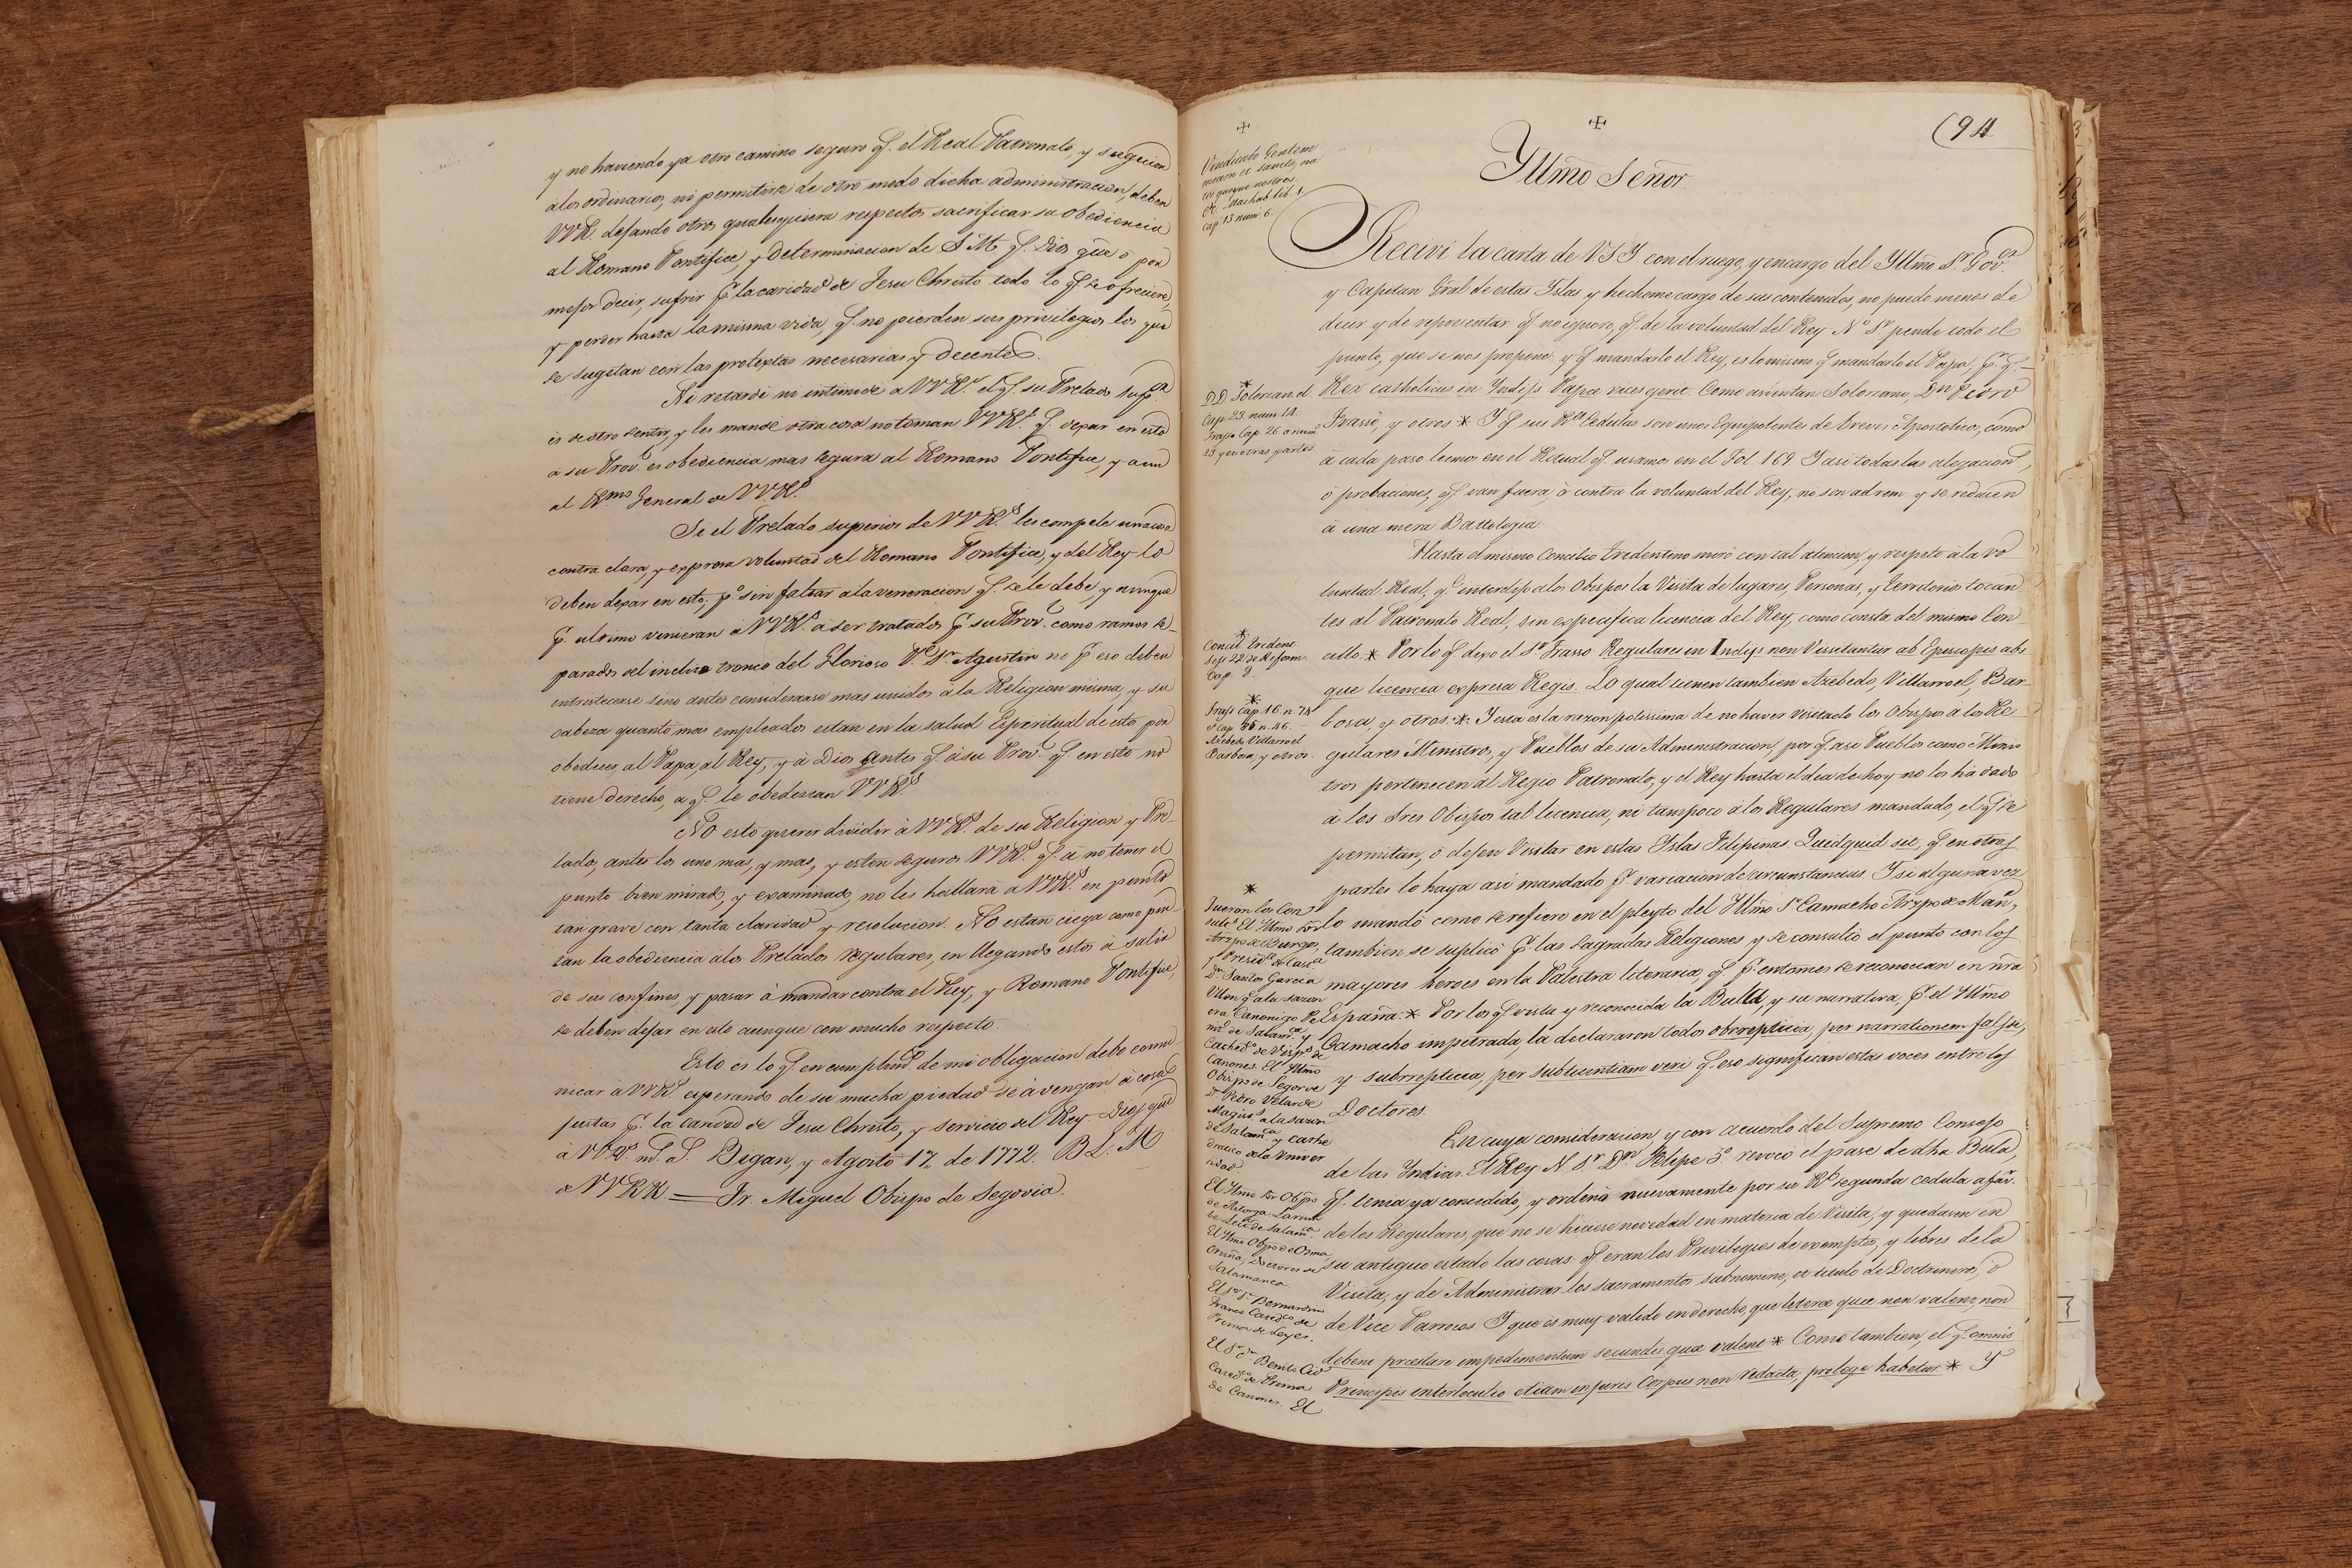 y no haviendo ya otro camino seguro q̃. el Real Patronato y sugecion
a los ordinarios, ni permitirse de otro modo dicha administracion, deben
VVR. dejando otros qualesquiera respectos sacrificar su obediencia
al Romano Pontifice, y determinacion de S.M. q̃. Dios gũe o por
mejor decir, sufrir p̃. la caridad de Jesu Christo todo lo q̃. se ofreciere,
y perder hasta la misma vida, q̃. no pierden sus privilegios los que
se sugetan con las protextas necesarias y decentes.
Ni retarde ni intimide a VVRˢ. el q̃. su Prelado Supᵒʳ
es de otro sentir, y les mande otra cosa no teman VVRˢ. q̃. dexar en esto
a su Provˡ. es obediencia mas segura al Romano Pontifice, y aun
al Rᵐᵒ General de VVRˢ.
Si el Prelado superior de VVRˢ. les compele una cosa
contra clara, y expresa voluntad del Romano Pontifice, y del Rey lo
deben dexar en esto; pᵒ sin faltar a la veneracion q̃. se le debe, y aunque
p̃. ultimo vinieran á VVRˢ. á ser tratados p̃. su Provˡ. como ramos se-
parados del inclito tronco del Glorioso P. Sⁿ. Agustin no p̃. eso deben
entristecerse sino antes considerarse mas unidos á la Religion misma, y su
cabeza quanto mas empleados estan en la salud Espiritual de estos por
obedecer, al Papa, al Rey, y á Dios antes q̃. á su Provˡ. q̃. en esto no
tiene derecho, a q̃. le obedescan VVRˢ.
No esto querer dividir á VVRˢ. de su Religion y Pre-
lado, antes los uno mas, y mas, y esten seguros VVRˢ. q̃. á no tener el
punto bien mirado, y examinado, no les hallara á VVRˢ. en punto
tan grave con tanta claridad y resolucion. No estan ciega como pin-
tan la obediencia á los Prelados regulares, en llegando estos á salir
de sus confines, y pasar á mandar contra el Rey, y Romano Pontifice,
se deben dejar en esto aunque con mucho respecto.
Esto es lo q̃. en cumplimᵗᵒ. de mi obligacion debo comu-
nicar á VVRˢ esperando de su mucha piedad se ávengan á cosas
justas p̃. la caridad de Jesu Christo, y servicio del Rey Dios gũe
á VVRˢ. mˢ. aˢ. Bigan, y Agosto 17,, de 1772. B L. M
de VVRR = Fr. Miguel Obispo de Segovia.
(94
Yllmo Señor.
Vindicabo Gentem
meam et sancta, na
tos quoque nostros
Machab lib. 1.
cap. 13 num. 6.
Recivi la carta de VSY. con el ruego, y encargo del Yllmo Sʳ. Govᵒʳ.
y Capitan Gral de estas Yslas y hechome cargo de sus contenidos, no puedo menos de
decir y de representar. q̃ no ignoro, q̃. de la voluntad del Rey Nᵒ Sʳ pende todo el
punto, que se nos propone: y q̃ mandarlo el Rey, es lo mismo q̃ mandarlo el Papa, p̃. q̃.
Rex catholicus in Yndijs Papæ vices gerit. Como asientan Solorzano, Dⁿ Pedro
Frasso, y otros * Y q̃ sus Rˡˢ Cedulas son unos Equipotentes de breves Apostolicos, como
á cada paso leemos en el Ritual q̃. usamos en el Fol. 169. Y asi todas las alegaciones,
ó probaciones, q̃ van fuera, ó contra la voluntad del Rey, no son ad rem y se reducen
á una mera Battologia.
*
DD. Solorzan. d.
Cap. 23. num. 14.
Frasso Cap. 26. a num.
23 y en otras partes.
Hasta el mismo Concilio tridentino miró con tal atencion, y respeto á la vo-
luntad Real, q̃. interdijo a los Obispos la Visita de lugares, Personas, y territorios tocan
tes al Patronato Real, sin especifica licencia del Rey, como consta del mismo Con
cilio. * Por lo q̃. dixo el Sʳ Frasso Regulares in Indijs non Vissitantur ab Episcopis abs
que licencia expresa Regis. Lo qual tienen tambien Azebedo, Villarroel, Bar-
bosa, y otros: * Y esta es la razon potissima de no haver visitado los Obispos á los Re-
gulares Ministros, y Pueblos de su Administracion, por q̃. asi Pueblos como Minis
tros pertenecen al Regio Patronato, y el Rey hasta el dia de hoy no los ha dado
á los Sres Obispos tal licencia, ni tampoco á los Regulares mandado, el q̃. se
permitan, ó dejen Visitar en estas Yslas Filipinas. Quidquid sit, q̃. en otras
partes lo haya asi mandado p̃. variacion de circunstancias. Y si alguna vez
lo mandó como se refiere en el pleyto del Yllmo Sʳ Camacho Arzpo de Manᵃ,
tambien se suplicó p̃. las Sagradas Religiones y se consultó el punto con los
mayores heroes en la Palestra literaria, q̃. p̃. entonces se reconocian en nra
España. * Por los q̃. vista y reconocida la Bulla, y su narrativa, p̃. el Yllmo
Camacho impetrada, la declararon todos obrrepticia, per narrationem falsi,
y subrrepticia, per subticentiam veri q̃. eso significan estas voces entre los
Doctores.
*
Concil. trident
Sess 22 de Reform.
Cap. 8.
*
Frass Cap. 16. n. 74
Azebedo Villarroel
Barbosa, y otros.
En cuya consideracion y con acuerdo del Supremo Consejo
de las Yndias. El Rey N. Sʳ. Dⁿ. Felipe 5º revocó el pase de dha Bula,
q̃. tenia ya concedido, y ordenó nuevamente por su Rˡ. segunda cedula a fav.
de los Regulares, que no se hiciese novedad en materia de Visita, y quedasen en
su antiguo estado las cosas: q̃. eran los Privilegios de exemptos, y libres de la
Visita, y de Administrar los sacramentos sub nomine, et titulo de Doctrineros, ó
de Vice Parrocos. Y que es muy valido en derecho, que literæ quæ non valent, non
debent præstare impedimentum secundis, quæ valent * Como tambien, el q̃. omnis
Principis interlocutio etiam in juris Corpus non redacta, pro lege habetur. * Y
*
Fueron los Con
sultˢ. El Yllmo Sor
Arzpo de Burgos,
y Presidᵗᵉ de Castᵃ.
Dⁿ Santos Garcia
q̃. a la sazon
era Canonigo
de Salamᶜᵃ. y
Cathedᶜᵒ de Vispˢ. de
Canones. El Yllmo
Obispo de Segorve
Dⁿ Pedro Velarde
a la sazon
de Salamᶜᵃ. y Cathe
dratico de la Univer
sidad.
El Yllmo Sor Obpo
de Astorga
de Salamᶜᵃ.
El Yllmo Obpo de Osma
Doctores de
Salamanca
El Sʳ. Dⁿ. Bernardino
Franco Catedᶜᵒ de
Prima de Leyes.
El Sʳ Dⁿ. Benito Cid
Catedᶜᵒ de Prima
de Canones. El